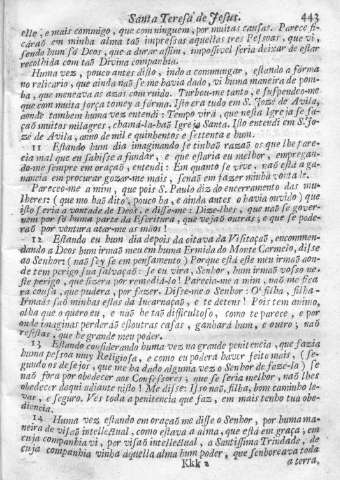 Santa Teresa de Jesus. 443
elle, e mais commigo, que com ninguem, por muitas causas. Parece fi-
càraõ em minha alma taõ impressas aquellas tres Pessoas, que vi,
sendo hum só Deos, que a durar assim, impossivel seria deixar de estar
recolhida com taõ Divina companhia.
Huma vez, pouco antes disto, indo a commungar, estando a fórma
no relicario, que ainda naõ se me havia dado, vi huma maneira de pom-
ba, que meneava as azas com ruido. Turbou-me tanto, e suspendeo-me
que com muita força tomey a fórma. Isto era tudo em S. Jozé de Avila,
aonde tambem huma vez entendi: Tempo virá, que nesta Igreja se fa-
çaõ muitos milagres, chamà-la-haõ Igreja Santa. Isto entendi em S. Jo-
zé de Avila, anno de mil e quinhentos e settenta e hum.
11 Estando hum dia imaginando se tinhaõ razaõ os que lhe pare-
cia mal que eu sahisse a fundar, e que estaria eu melhor, empregan-
do-me sempre em oraçaõ, entendi: Em quanto se vive, naõ está a ga-
nancia em procurar gozar-me mais, senaõ em fazer minha vontade.
Pareceo-me a mim, que pois S. Paulo diz do encerramento das mu-
lheres (que mo haõ dito, pouco ha, e ainda antes o havia ouvido) que
isto seria a vontade de Deos, e disse-me: Dize-lhes, que naõ se gover-
nem por só huma parte da Escritura, que vejaõ outras; e que se pode-
raõ por ventura atar-me as mãos!
12 Estando eu hum dia depois da oitava da Visitaçaõ, encommen-
dando a Deos hum irmaõ meu em huma Ermida do Monte Carmelo, disse
ao Senhor: (naõ sey se em pensamento) Porque está este meu irmaõ aon-
de tem perigo sua salvaçaõ: Se eu vira, Senhor, hum irmaõ vosso ne-
ste perigo, que fizera por remediá-lo! Parecia-me a mim, naõ me fica-
ra cousa, que pudera, por fazer. Disse-me o Senhor: O' filha, filha,
Irmãas saõ minhas estas da Incarnaçaõ, e te detens! Pois tem animo,
olha que o quero eu, e naõ he taõ difficultoso, como te parece, e por
onde imaginas perderàõ essoutras casas, ganharà hum, e outro; naõ
resistas, que he grande meu poder.
13 Estando considerando huma vez na grande penitencia, que fazia
huma pessoa muy Religiosa, e como eu poderà haver feito mais, (se-
gundo os desejos, que me ha dado alguma vez o Senhor de faze-la) se
naõ fora por obedecer aos Confessores; que se seria melhor, naõ lhes
obedecer daqui adiante nisto! Me disse: Isso naõ, filha, bom caminho le-
vas, e seguro. Vés toda a penitencia que faz, em mais tenho tua obe-
diencia.
14 Huma vez estando em oraçaõ me disse o Senhor, por huma ma-
neira de visaõ intellectual, como estava a alma, que está em graça; em
cuja companhia vi, por visaõ intellectual, a Santissima Trindade, de
cuja companhia vinha àquella alma hum poder, que senhoreava toda
Kkk 2 a terra,